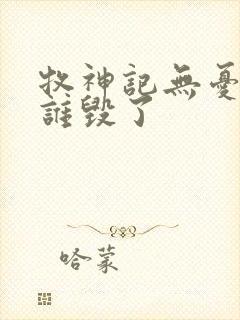 牧神記無憂
誰毀了
哈蒙